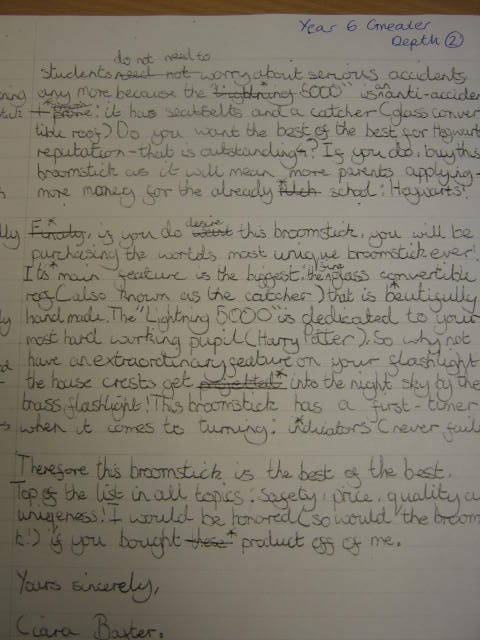 Year 6 Greater
Depth 2
do not need to
students need not worry about serious accidents
any more because the "Lightning 5000" is an anti-accident
prone: it has seatbelts and a catcher (glass conver
tible roof) Do you want the best of the best for Hogwarts
reputation - that is outstanding? If you do, buy this
broomstick as it will mean more parents applying -
more money for the already school: Hogwarts!
Finally, if you do desire this broomstick, you will be
purchasing the worlds most unique broomstick ever!
Its* main feature is the biggest, the glass convertible
roof (also known as the catcher) that is beutifully
hand made. The "Lightning 5000" is dedicated to your
most hard working pupil (Harry Potter). So why not
have an extraordinary feature on your flashlight
the house crests get projected* into the night sky by the
brass flashlight! This broomstick has a first-timer
when it comes to turning: *indicators (never fail
Therefore this broomstick is the best of the best.
Top of the list in all topics: safety, price, quality
uniqeness! I would be honored (so would the broom
k!) if you bought these* product off of me.
Yours sincerely,
Ciara Baxter.